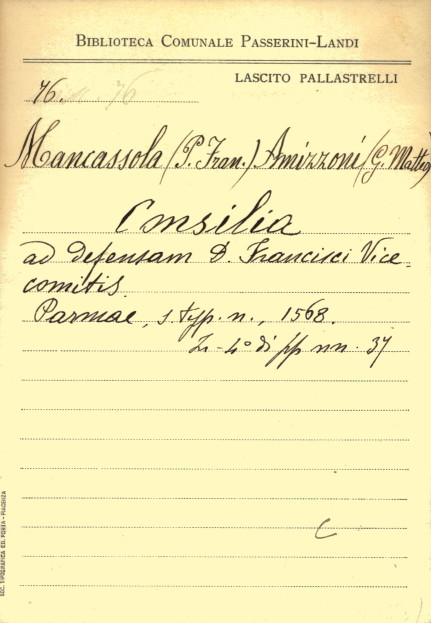 BIBLIOTECA COMUNALE PASSERINI-LANDI
LASCITO PALLASTRELLI
76.
Mancassola (P. Fran.) Amizzoni (G. Matteo)
Consilia
ad defensam D. Francisci Vice-
comitis.
Parmae, s. typ. n., 1568.
In-4° di pp nn. 37
SOC. TIPOGRAFICA ED. PORTA - PIACENZA